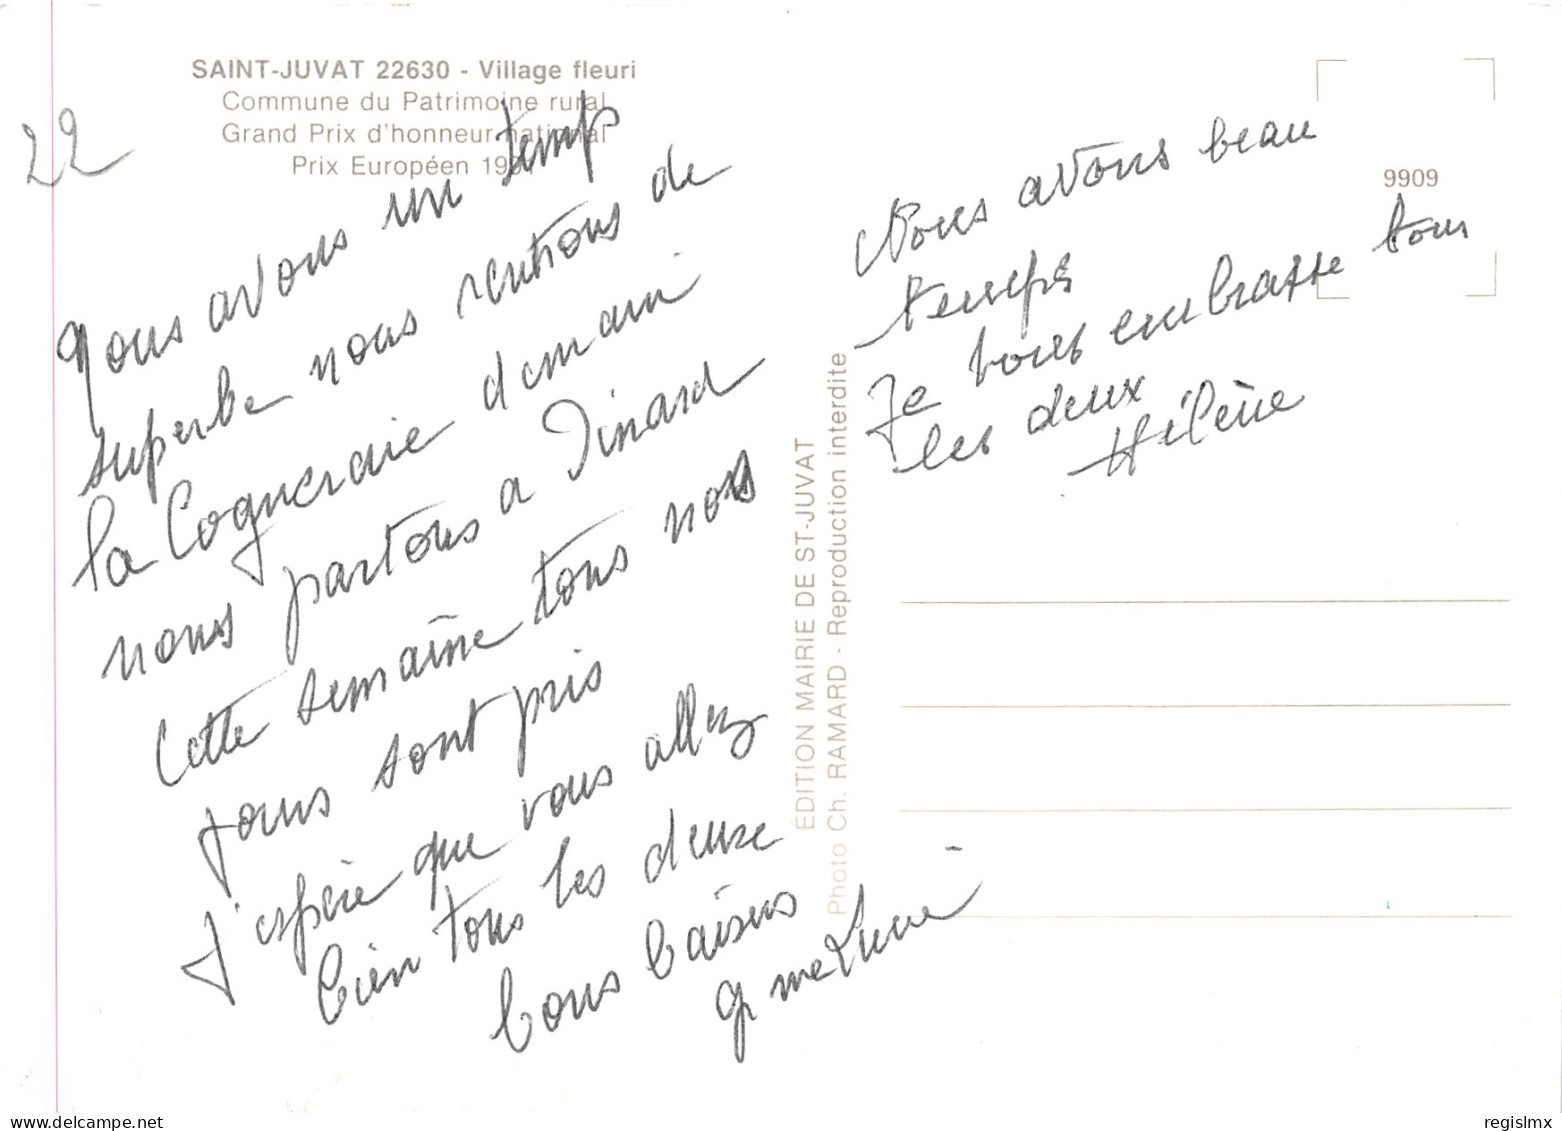 SAINT-JUVAT 22630 - Village fleuri
Commune du Patrimoine rural
Grand Prix d'honneur national
Prix Européen 19
22
nous avons un temp
superbe nous rentrons de
la Coqueraie demain
nous partons a Dinard
Cette semaine tous nos
jours sont pris
j'espère que vous allez
bien tous les deux
bons baisers
9909
Nous avons beau
temps
Je vous embrasse tous
les deux
Hélène
ÉDITION MAIRIE DE ST-JUVAT
Photo Ch. RAMARD - Reproduction interdite
regislmx